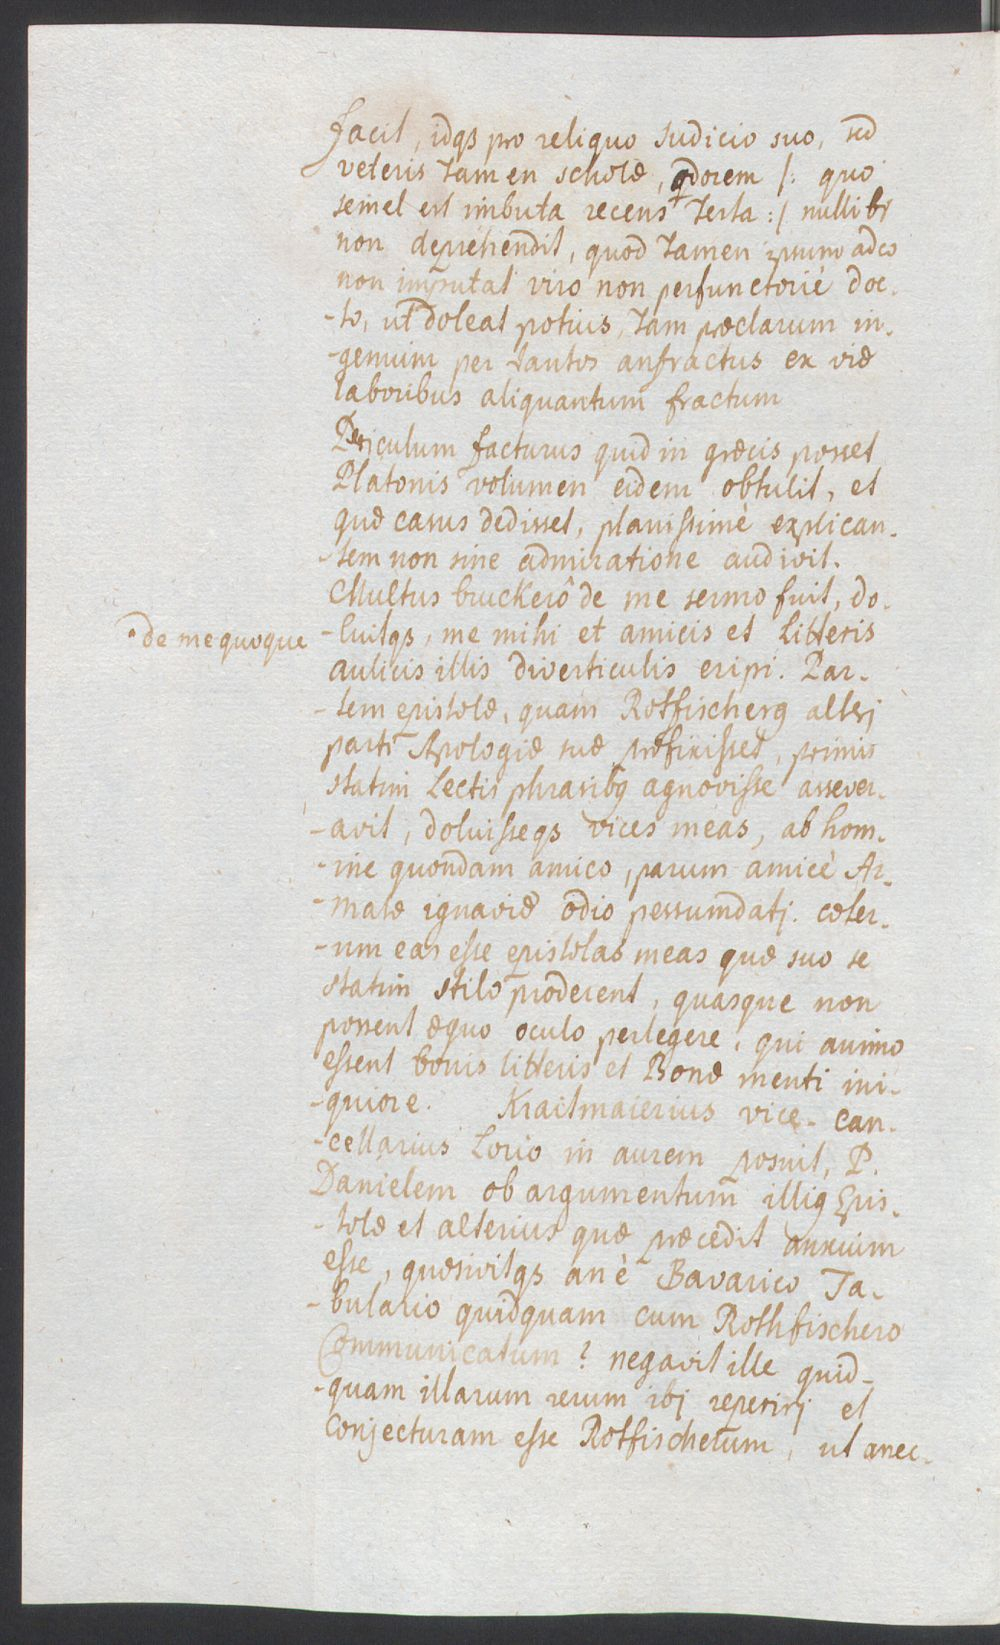 facit, idqs pro reliquo Judicio suo, sed
veteris tamen scholæ, odorem /: quo
semel est imbuta recens testa :/ nullibi
non deprehendit, quod tamen adeo
non imputat viro non perfunctoriè doc-
-to, ut doleat potius, tam præclarum in-
-genium per tantos anfractus ex viæ
laboribus aliquantum fractum
Periculum facturus quid in græcis posset
Platonis volumen eidem obtulit, et
quæ casus dedisset, planissimè explican-
-tem non sine admiratione audivit.
Multus bruckerô de me sermo fuit, do-
de me quoque
-luitqs, me mihi et amicis et Litteris
aulicis illis diverticulis eripi. Par-
-tem epistolæ, quam Rotfischerg alterj
parti Apologiæ suæ præfixisset, primis
statim Lectis phrasibg agnovisse assever-
-avit, doluisseqs vices meas, ab hom-
-ine quondam amico, parum amicè Ar-
-matæ ignaviæ odio pessumdatj. cæter-
-um eas esse epistolas meas quæ suo se
statim stilo proderent, quasque non
possent æquo oculo perlegere, qui animo
essent bonis litteris et Bonæ menti ini-
-quiore. Kraitmaierius vice-can-
-cellarius Lorio in aurem posuit, P.
Danielem ob argumentum illig Epis-
-tolæ et alterius quæ præcedit anxium
esse, quæsivitqs an è Bavarico Ta-
-bulario quidquam cum Rothfischero
Communicatum? negavit ille quid-
-quam illarum rerum ibj reperirj et
Conjecturam esse Rotfischerum, ut anec-